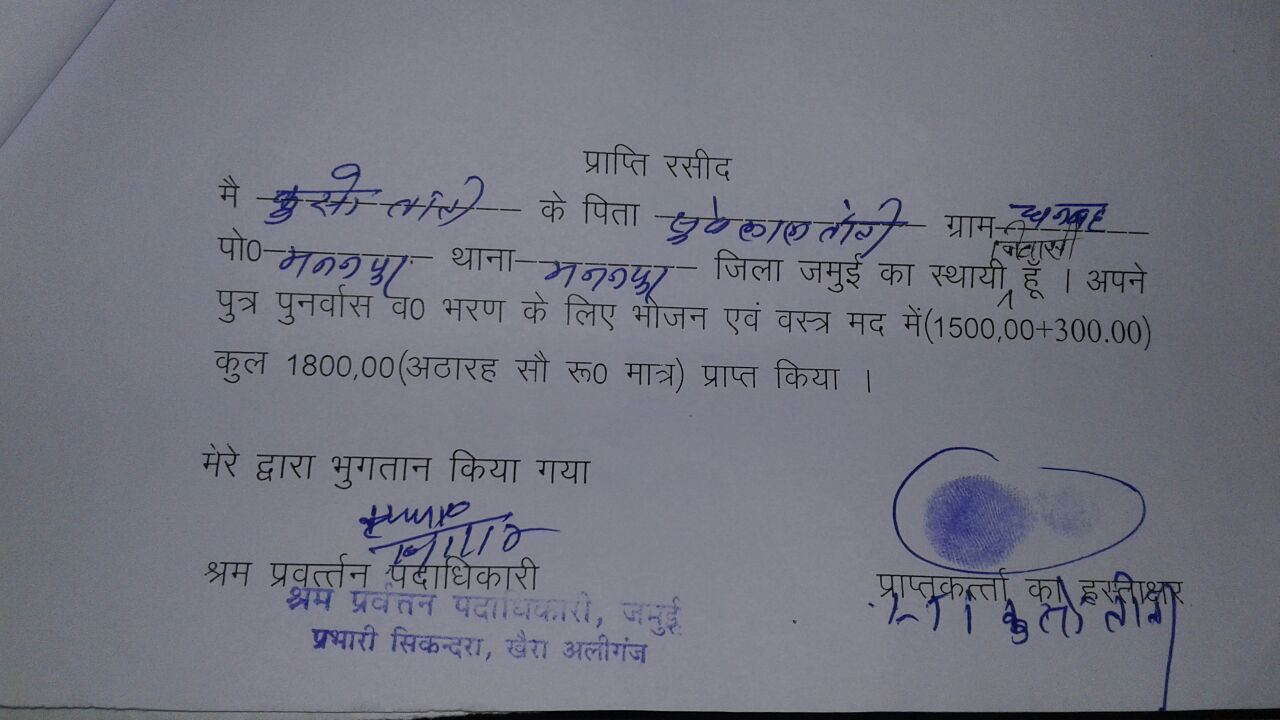 प्राप्ति रसीद
मै कुसो तांती के पिता सुकेलाल तांती ग्राम
निवासी
पो0 मननपुर थाना मननपुर जिला जमुई का स्थायी हूँ । अपने
पुत्र पुनर्वास व0 भरण के लिए भोजन एवं वस्त्र मद में(1500,00+300.00)
कुल 1800,00(अठारह सौ रू0 मात्र) प्राप्त किया ।
मेरे द्वारा भुगतान किया गया
श्रम प्रवर्त्तन पदाधिकारी
श्रम प्रर्वतन पदाधिकारी, जमुई
प्रभारी सिकन्दरा, खैरा अलीगंज
प्राप्तकर्त्ता का हस्ताक्षर